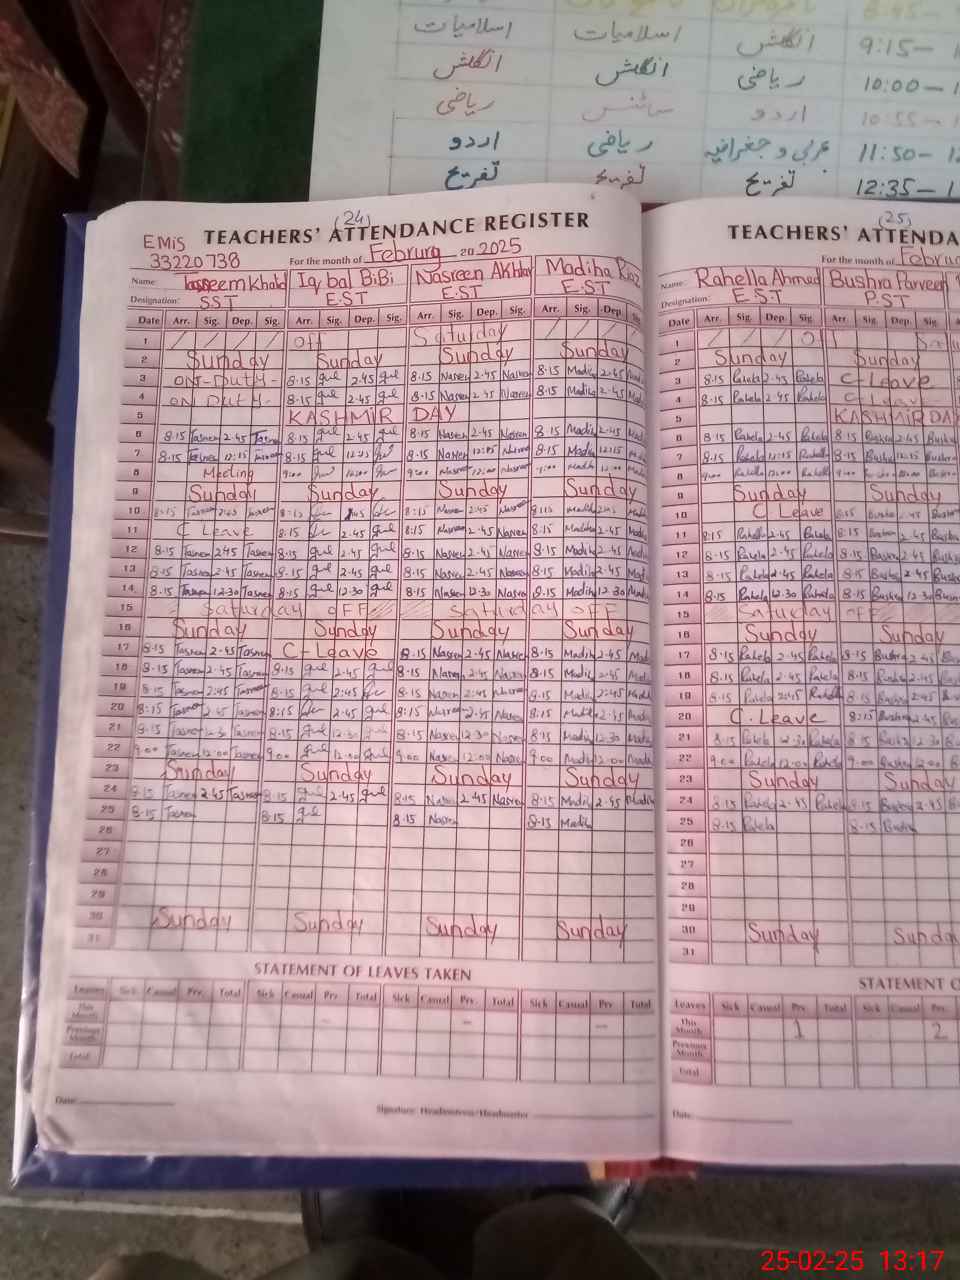 اسلامیات اسلامیات انگلش 9:15 –
انگلش انگلش ریاضی 10:00 –
ریاضی سائنس اردو 10:55 –
اردو ریاضی عربی و جغرافیہ 11:50 –
تفریح تفریح تفریح 12:35 –
(24)
EMiS TEACHERS' ATTENDANCE REGISTER
33220738 For the month of Februry 20 2025
Name: Tasneem Khalid Iqbal BiBi Nasreen Akhtar Madiha Riaz
Designation: SST E.ST E.ST E.ST
Date Arr. Sig. Dep. Sig. Arr. Sig. Dep. Sig. Arr. Sig. Dep. Sig. Arr. Sig. Dep. Sig.
1 Off Saturday
2 Sunday Sunday Sunday Sunday
3 ON-Duty- 8-15 gul 2-45 gul 8-15 Nasren 2-45 Nasren 8-15 Madih 2-45
4 ON Duty- 8-15 gul 2-45 gul 8-15 Nasren 2-45 Nasren 8-15 Madih 2-45
5 KASHMIR DAY
6 8-15 Tasnem 2-45 8-15 gul 2-45 8-15 Nasren 2-45 Nasren 8-15 Madih 2-45
7 8-15 12:15 8-15 gul 12:15 8-15 Nasren 12:15 8-15 Madih 12:15
8 Meeting 9:00 12:00 9:00 12:00 12:00
9 Sunday Sunday Sunday Sunday
10 8:15 2:45 8:15 2:45 8:15 2:45 8:15
11 C Leave 8:15 2.45 gul 8:15 Nasren 2-45 Nasren 8-15 Madiha 2-45
12 8-15 Tasnem 2-45 Tasnem 8-15 gul 2-45 gul 8-15 Nasren 2-45 Nasren 8-15 Madih 2-45
13 8-15 Tasnem 2-45 Tasnem 8-15 gul 2-45 gul 8-15 Nasren 2-45 Nasren 8-15 Madih 2-45
14 8-15 Tasnem 12-30 Tasnem 8-15 gul 12-30 gul 8-15 Nasren 12-30 Nasren 8-15 Madih 12-30
15 Saturday OFF Saturday OFF
16 Sunday Sunday Sunday Sunday
17 8-15 Tasnem 2-45 Tasnem C-Leave 8-15 Nasren 2-45 Nasren 8-15 Madih 2-45
18 8-15 Tasnem 2-45 Tasnem 8-15 gul 2-45 gul 8-15 Nasren 2-45 Nasren 8-15 Madih 2-45
19 8-15 Tasnem 2:45 Tasnem 8-15 gul 2:45 8-15 Nasren 2:45 8-15 Madih 2:45
20 8:15 Tasnem 2-45 Tasnem 8:15 2-45 gul 8:15 Nasren 2-45 Nasren 8:15 Madih 2-45
21 8-15 Tasnem 12-30 Tasnem 8-15 gul 12-30 gul 8-15 Nasren 12-30 Nasren 8-15 Madih 12-30
22 9.00 Tasnem 12:00 Tasnem 9.00 gul 12:00 gul 9.00 Nasren 12:00 Nasren 9.00 Madih 12:00
23 Sunday Sunday Sunday Sunday
24 8-15 Tasnem 2-45 Tasnem 8-15 gul 2-45 gul 8-15 Nasren 2-45 Nasren 8-15 Madih 2-45 Madih
25 8-15 Tasnem 8-15 gul 8-15 Nasren 8-15 Madih
26
27
28
29
30 Sunday Sunday Sunday Sunday
31
STATEMENT OF LEAVES TAKEN
Leaves Sick Casual Prv. Total Sick Casual Prv. Total Sick Casual Prv. Total Sick Casual Prv. Total
This Month – – –
Previous Month
Total
Date: Signature: Headmistress/Headmaster
(25)
TEACHERS' ATTENDA
For the month of Februr
Name: Rahella Ahmed Bushra Parveen
Designation: E.S.T P.ST
Date Arr. Sig. Dep. Sig. Arr. Sig. Dep. Sig.
1
2 Sunday Sunday
3 8-15 Rahela 2-45 Rahela C-Leave
4 8-15 Rahela 2-45 Rahela C-Leave
5 KASHMIR DAY
6 8-15 Rahela 2-45 Rahela 8-15 Bushra 2-45 Bushra
7 8-15 Rahela 12:15 8-15 Bushra 12:15 Bushra
8 9:00 12:00 9:00
9 Sunday Sunday
10 C.Leave 8-15 Bushra 2-45 Bushra
11 8:15 2-45 Rahela 8:15 Bushra 2-45 Bushra
12 8-15 Rahela 2-45 Rahela 8-15 Bushra 2-45 Bushra
13 8-15 Rahela 2-45 Rahela 8-15 Bushra 2-45 Bushra
14 8-15 Rahela 12-30 Rahela 8-15 Bushra 12-30 Bushra
15 Saturday OFF
16 Sunday Sunday
17 8-15 Rahela 2-45 Rahela 8-15 Bushra 2-45
18 8-15 Rahela 2-45 Rahela 8-15 Bushra 2-45
19 8-15 Rahela 2:45 8-15 Bushra 2:45
20 C.Leave 8:15 Bushra 2-45
21 8-15 Rahela 12-30 Rahela 8-15 Bushra 12-30
22 9.00 Rahela 12:00 Rahela 9.00 Bushra 12:00
23 Sunday Sunday
24 8-15 Rahela 2-45 Rahela 8-15 Bushra 2-45
25 8-15 Rahela 8-15 Bushra
26
27
28
29
30 Sunday Sunda
31
STATEMENT O
Leaves Sick Casual Prv. Total Sick Casual Prv.
This Month 1 2
Previous Month
Total
Date:
25-02-25 13:17